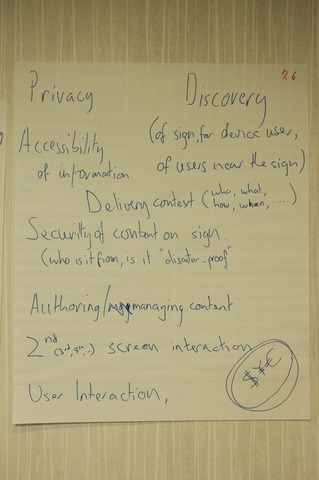 7.6
Privacy Discovery
Accessibility (of sign, for device user,
of information of users near the sign)
Delivery context (who, what,
how, when, ....)
Security of content on sign.
(who is it from, is it "disaster-proof"
Authoring/managing content
2nd (3rd, 4th, .) screen interaction
$ ¥ €
User Interaction,